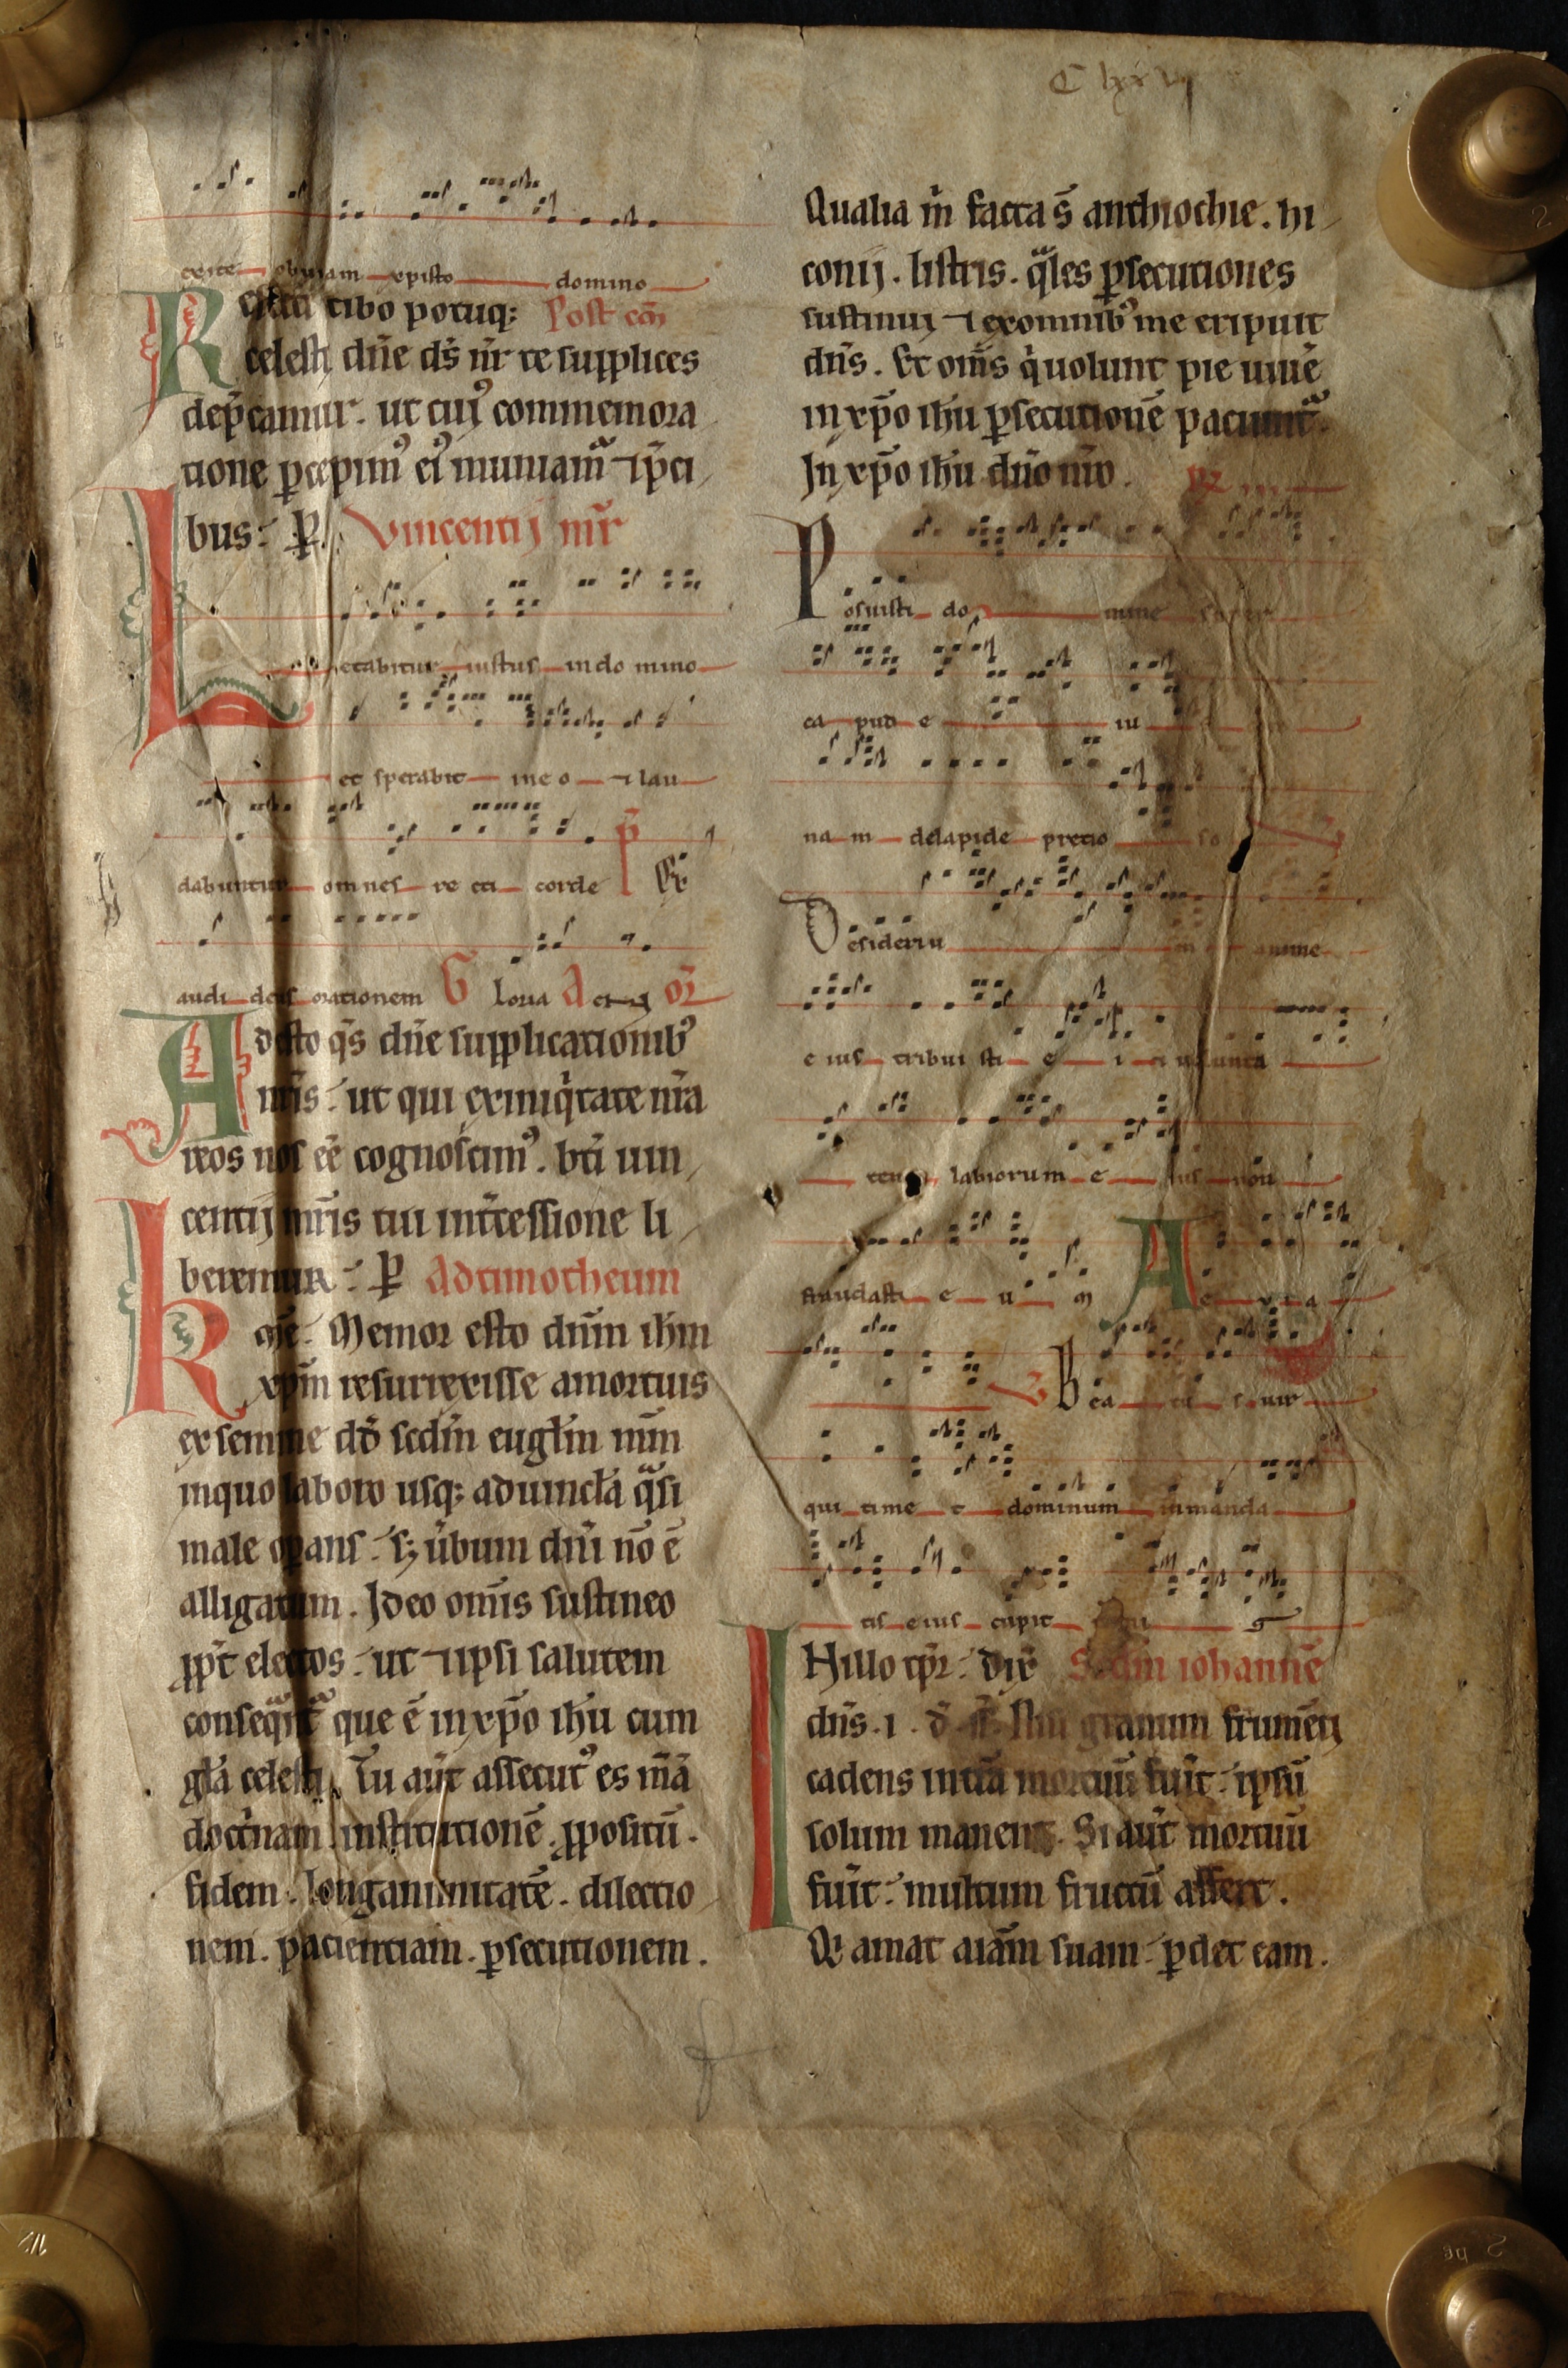 C lxxv
exite obuiam xpisto domino
Refecti cibo potuq; Post cō
celesti dn̄e ds̄ nr̄ te supplices
dep̄camur. ut cuiꝰ commemora
tione ꝑcepimꝰ eiꝰ muniamᷓ ⁊ p̄ci
bus: ꝑ Vincentij mr̄
Letabitur iustus in do mino
et sperabit in eo ⁊ lau
dabuntur omnes re cti corde p̄ Ex
audi deus orationem Gloria A et g or̄
Adesto qs̄ dn̄e supplicationibꝰ
nr̄is: ut qui ex iniqͥtate nr̄a
reos nos eē cognoscimꝰ. bt̄i uin
centij mr̄is tui int̄cessione li
beremur: ꝑ Ad timotheum
Kme. Memor esto dn̄m ihm̄
xpm̄ resurrexisse a mortuis
ex semine dd̄ scd̄m euglm̄ mm̄
in quo laboro usq; ad uincl̄a qᷓsi
male opans: sꝫ u̇bum dn̄i nō ē
alligatum. Ideo om̄is sustineo
ꝓpt̄ electos: ut ⁊ ipsi salutem
conseqᷓntᷓ que ē in xp̄o ihu cum
gl̄a celesti. Tu aūt assecutꝰ es m̄ā
doctͥnam institutionē. ꝓpositū.
fidem. longanimitatē. dilectio
nem. pacientiam. ꝑsecutionem.
Qualia m̄ facta s̄ anthiochie. hi
conij. listris. qᷓles ꝑsecutiones
sustinui ⁊ ex omnibꝰ me eripuit
dn̄s. Et om̄s qͥ uolunt pie uiuē
in xp̄o ihu ꝑsecutionē paciuntᷓ.
In xp̄o ihu dn̄o nr̄o.
Posuisti do mine super
ca pud e iu
na m de lapide precio so
Desideriu m anime
e ius tribui sti e i et uolunta
tem labiorum e ius non
fraudasti e u m Ae v i a
Bea tus uir
qui time t dominum in manda
tis eius cupit
IN illo tp̄r: dix̄ Scd̄m iohannē
dn̄s. i. d. s. Nisi granum frumēti
cadens in trā mortuū fuīt: ipsū
solum manent. Si aūt mortuū
fuīt: multum fructū affert.
Qͥ amat aīam suam: ꝑdet eam.